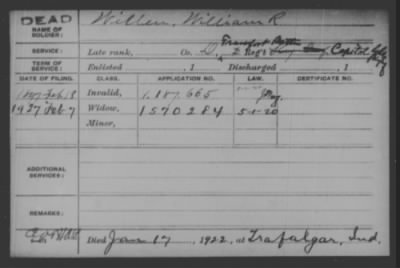 DEAD
NAME OF SOLDIER:
Willen, William R
SERVICE:
Late rank, Co. D, 2 Reg't
TERM OF SERVICE:
Enlisted , 1 Discharged , 1
DATE OF FILING. CLASS. APPLICATION NO. LAW. CERTIFICATE NO.
Invalid, 1,187,665
1927 Feb 7 Widow, 1570284 5-1-20
Minor,
ADDITIONAL SERVICES:
REMARKS:
Died Jan 17 1922, at Trafalgar, Ind.